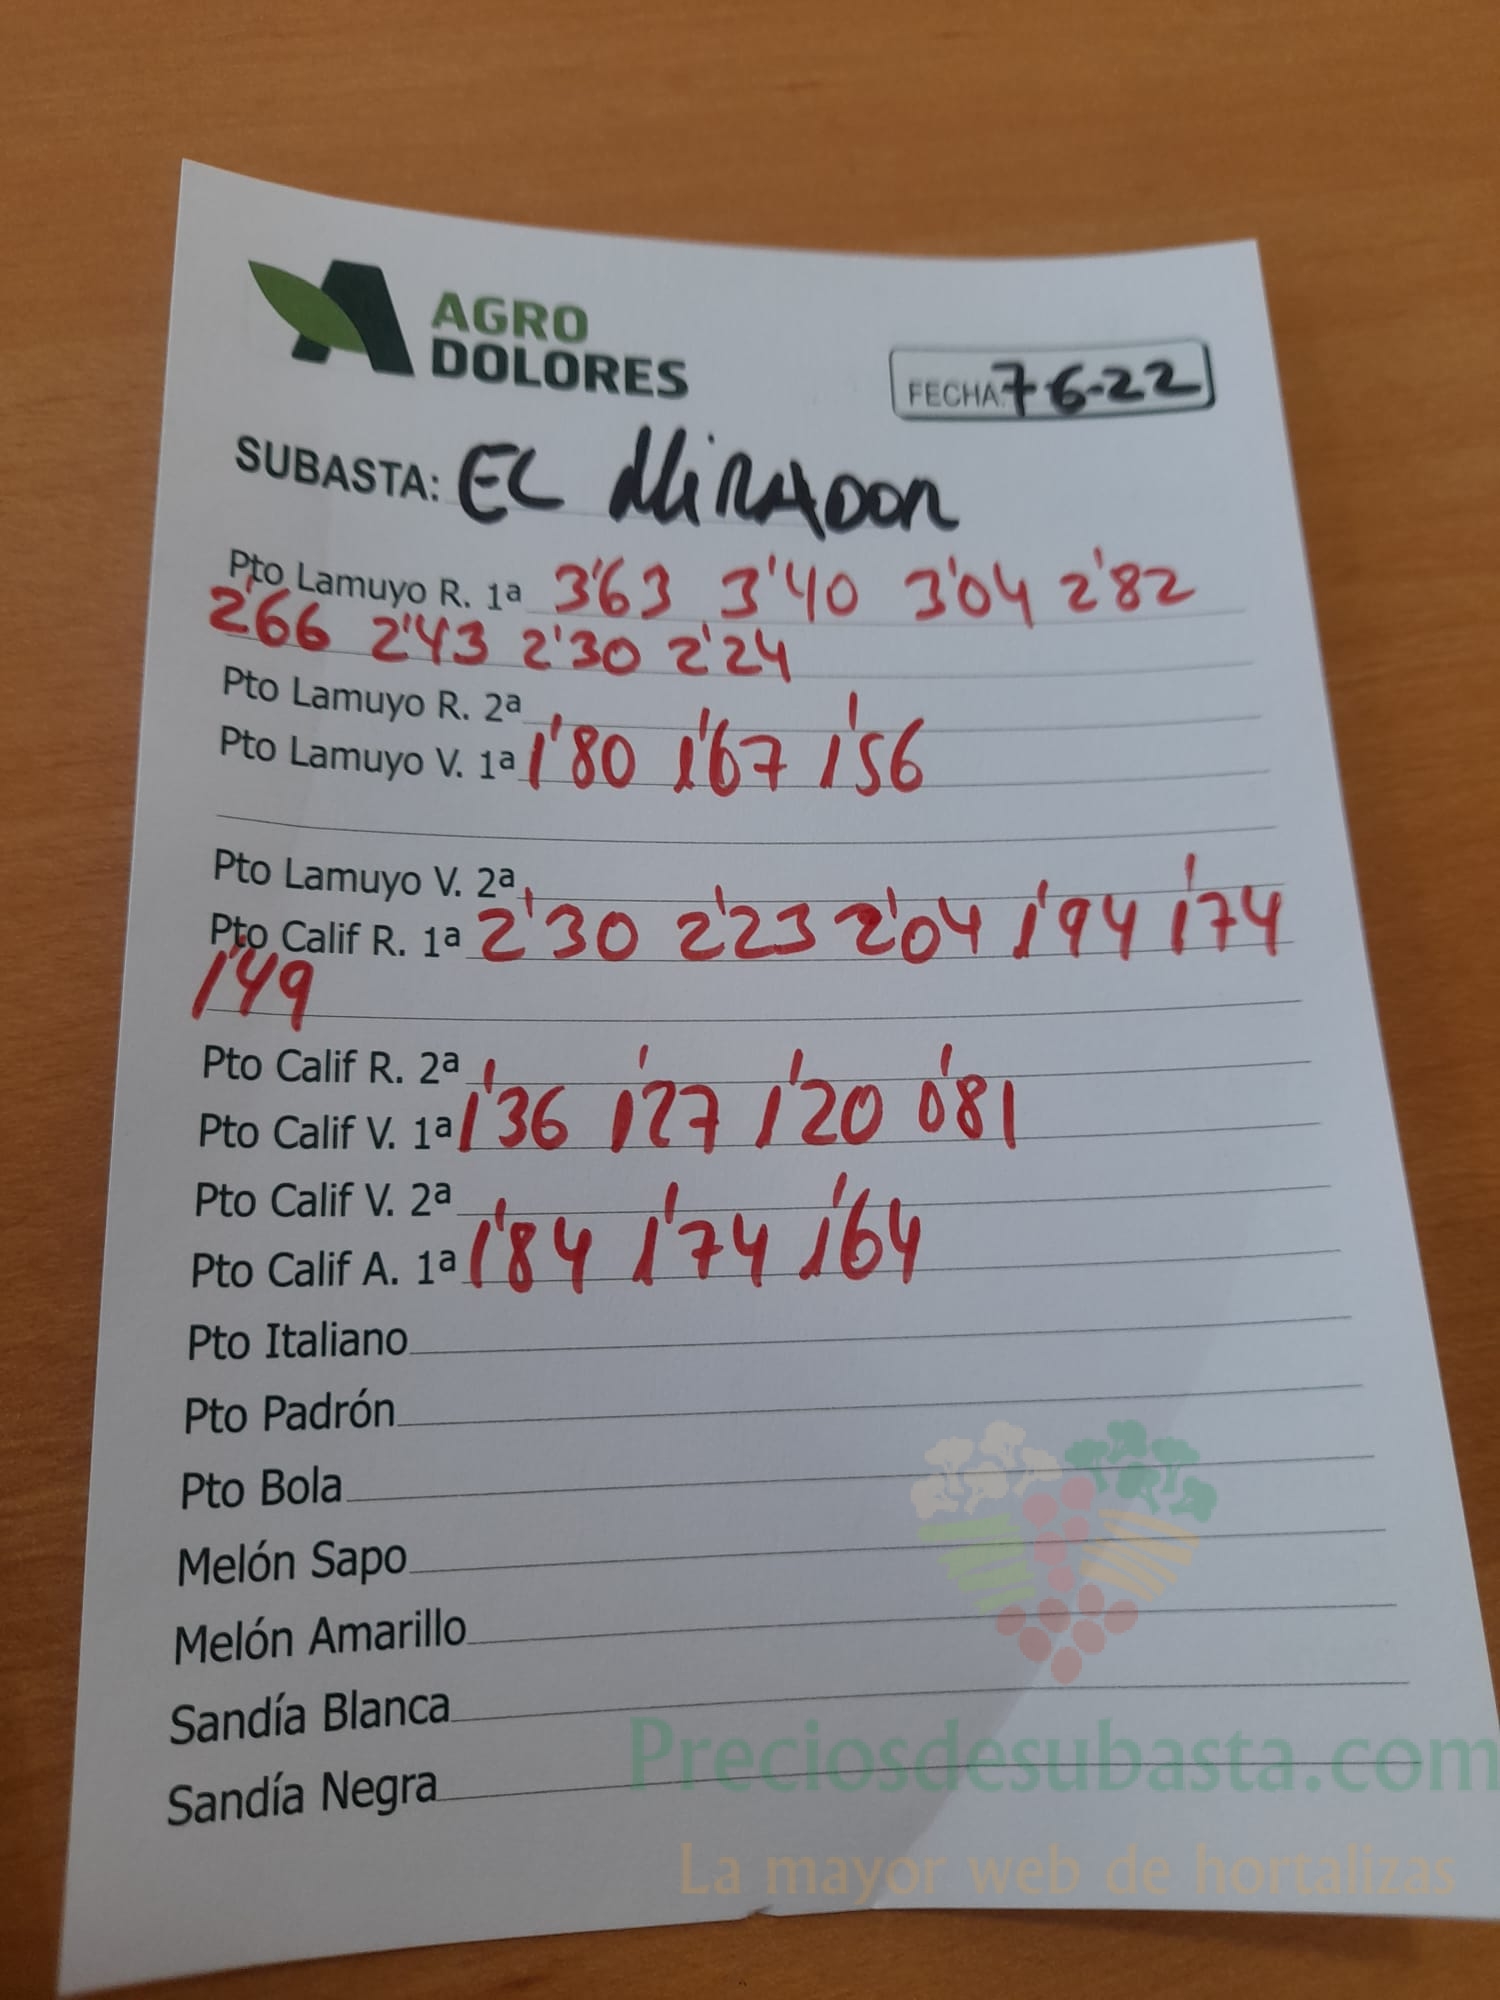 AGRO
DOLORES
FECHA: 7-6-22
SUBASTA: EL MIRADOR
Pto Lamuyo R. 1ª 3'63 3'40 3'04 2'82
2'66 2'43 2'30 2'24
Pto Lamuyo R. 2ª
Pto Lamuyo V. 1ª 1'80 1'67 1'56
Pto Lamuyo V. 2ª
Pto Calif R. 1ª 2'30 2'23 2'04 1'94 1'74
1'49
Pto Calif R. 2ª
Pto Calif V. 1ª 1'36 1'27 1'20 0'81
Pto Calif V. 2ª
Pto Calif A. 1ª 1'84 1'74 1'64
Pto Italiano
Pto Padrón
Pto Bola
Melón Sapo
Melón Amarillo
Sandía Blanca
Sandía Negra
Preciosdesubasta.com
La mayor web de hortalizas